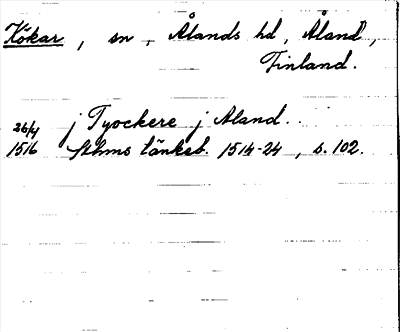 Kökar, sn, Ålands hd, Åland,
Finland.
26/4 j Tyockere j Aland.
1516 Sthms tänkeb. 1514-24, s. 102.